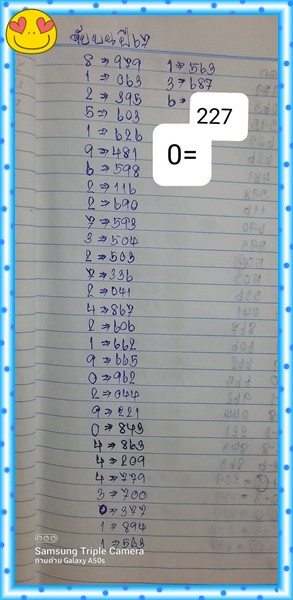 8 → 979
1 → 063
2 → 395
5 → 603
1 → 626
9 → 481
6 → 598
2 → 116
2 → 690
7 → 593
3 → 504
2 → 503
2 → 336
2 → 041
4 → 867
2 → 606
1 → 662
9 → 665
0 → 962
2 → 044
9 → 221
0 → 843
4 → 863
4 → 209
4 → 279
3 → 700
0 → 377
1 → 894
1 → 563
1 → 563
3 → 687
6 →
227
0=
Samsung Triple Camera
ถ่ายด้วย Galaxy A50s